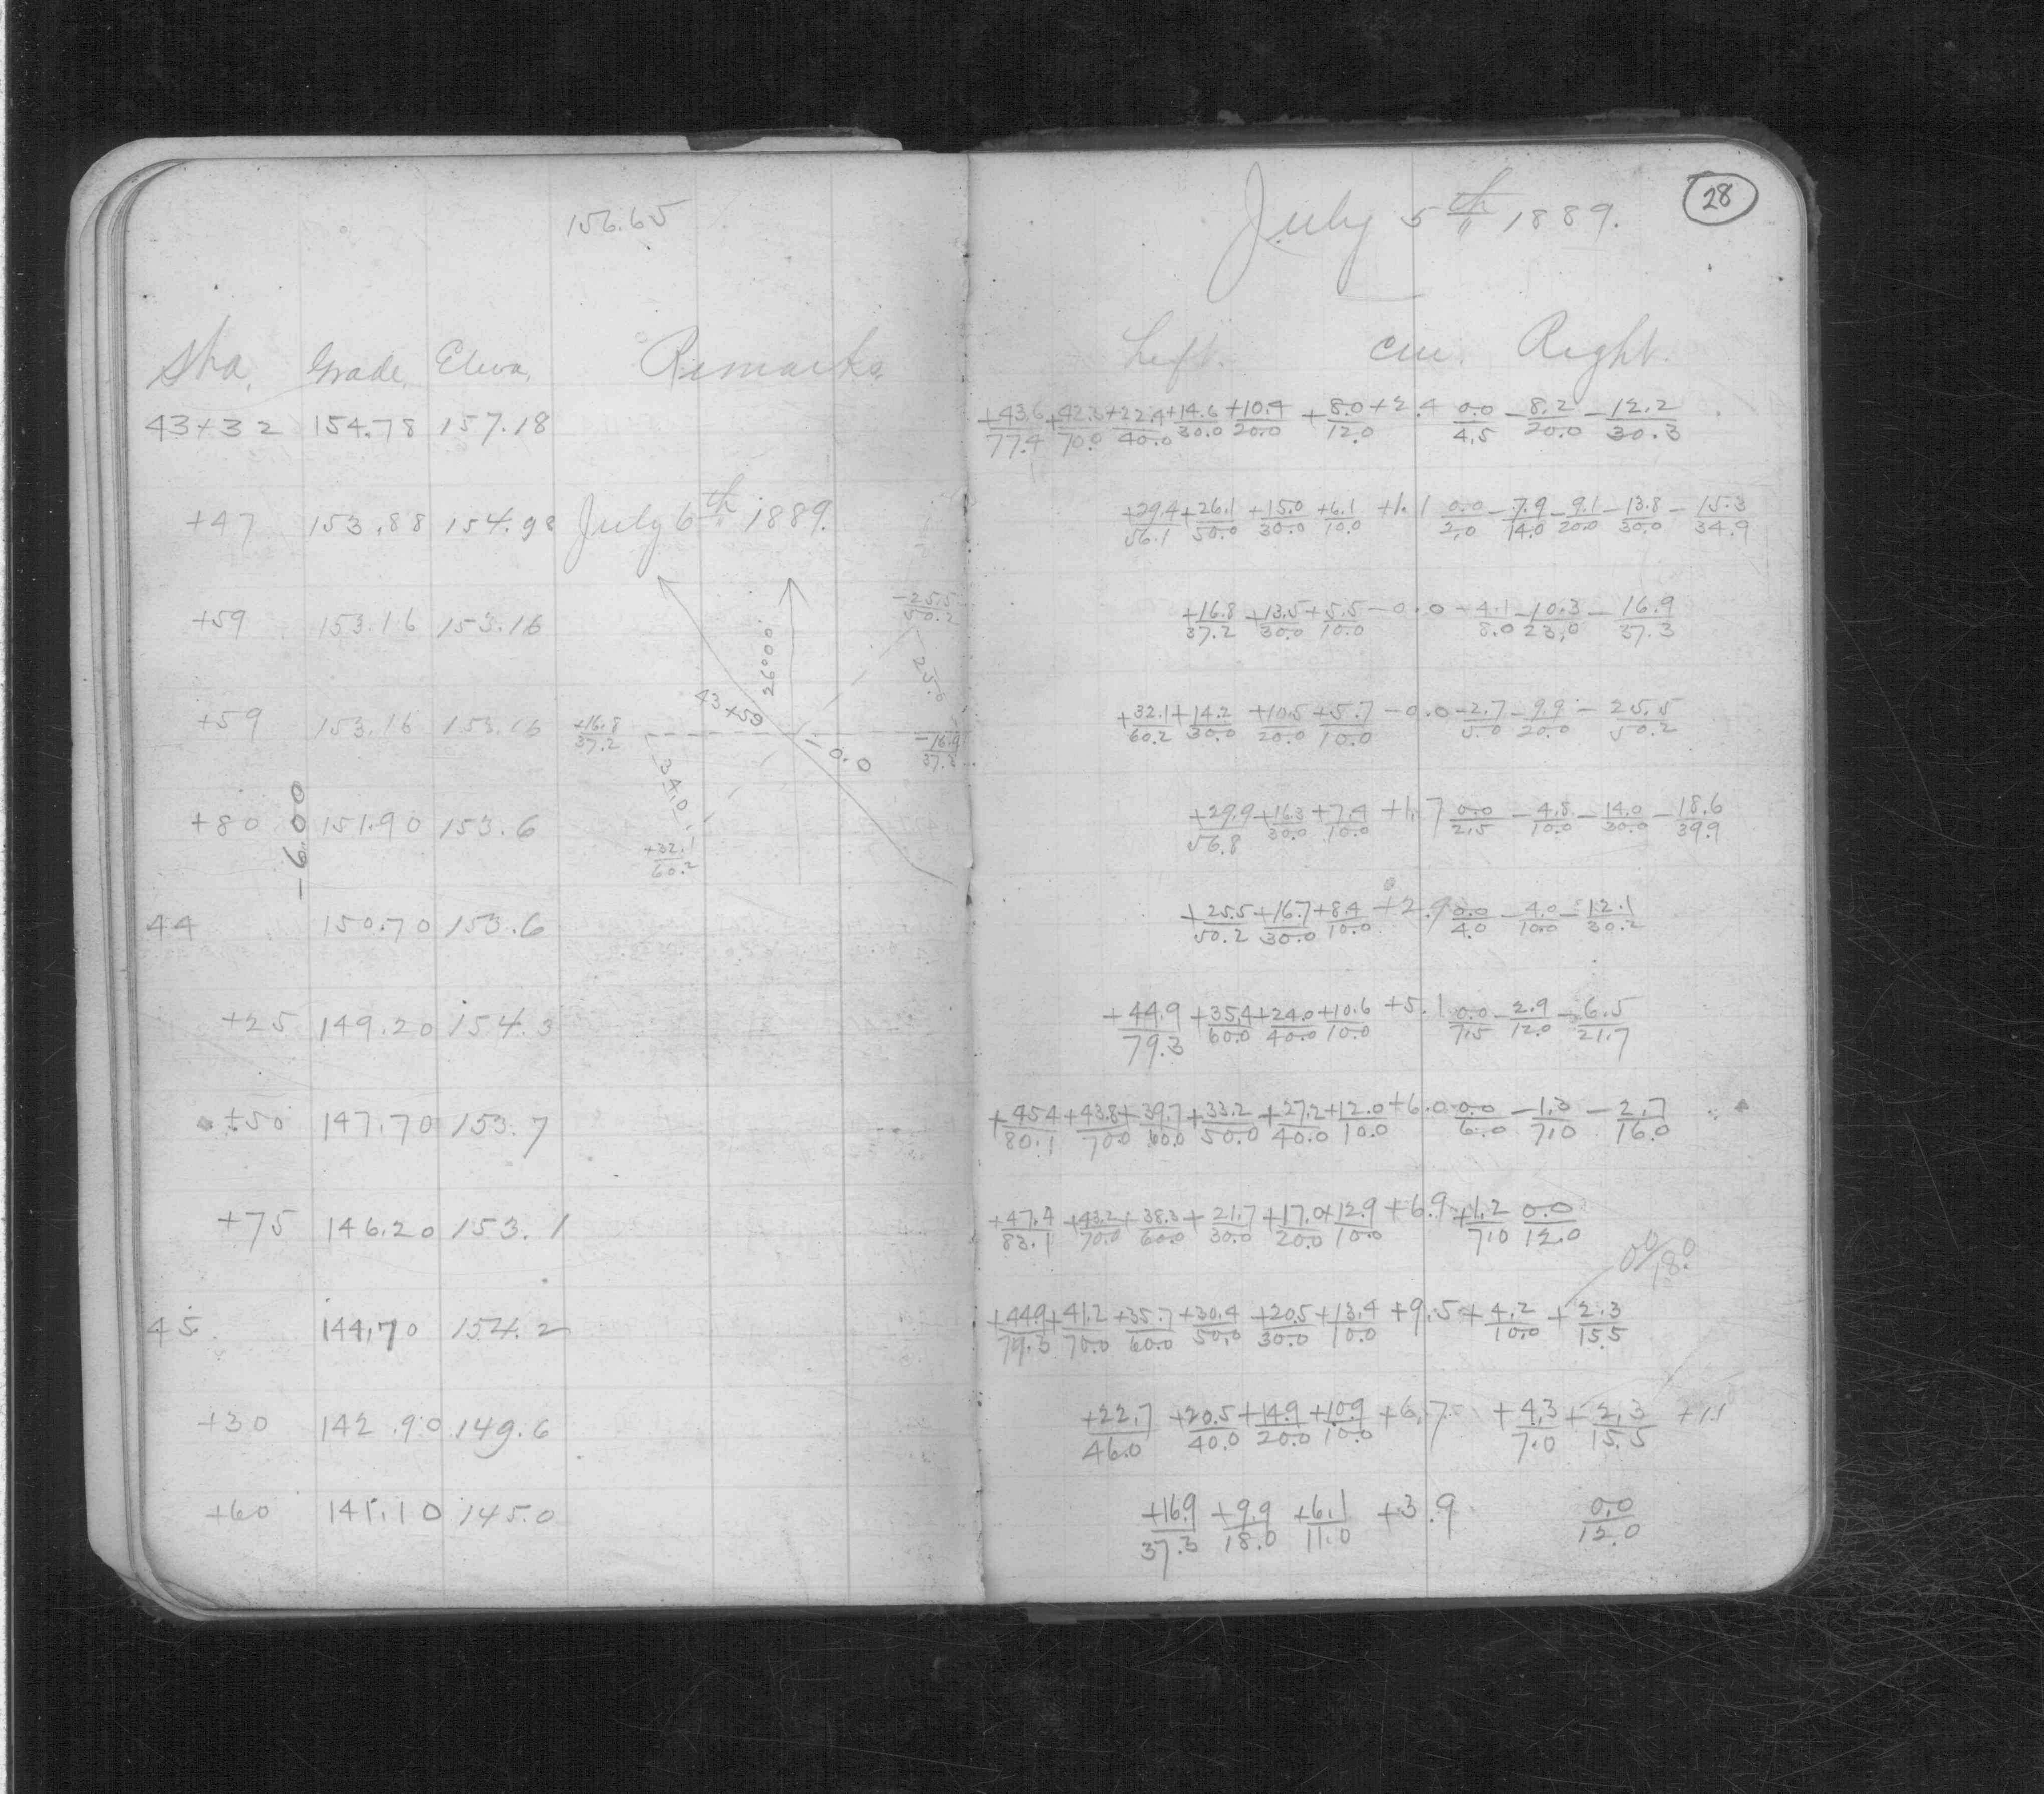 156.65
Sta. Grade. Eleva. Remarks
43+32 154.78 157.18
+47 153.88 154.98 July 6th 1889.
+59 153.16 153.16
-25.5/50.2
25.0
26°00'
43+59
+59 153.16 153.16 +16.8/37.2 -0.0 -16.9/37.3
34.0
+80 151.90 153.6
+32.1/60.2
-6.00
44 150.70 153.6
+25 149.20 154.3
+50 147.70 153.7
+75 146.20 153.1
45 144.70 154.2
+30 142.90 149.6
+60 141.10 145.0
28
July 5th 1889.
Left. Cen. Right.
+43.6/77.4 +42.3/70.0 +22.4/40.0 +14.6/30.0 +10.4/20.0 +8.0/12.0 +2.4 0.0/4.5 -8.2/20.0 -12.2/30.3
+29.4/56.1 +26.1/50.0 +15.0/30.0 +6.1/10.0 +1.1 0.0/2.0 -7.9/14.0 -9.1/20.0 -13.8/30.0 -15.3/34.9
+16.8/37.2 +13.5/30.0 +5.5/10.0 -0.0 -4.1/8.0 -10.3/23.0 -16.9/37.3
+32.1/60.2 +14.2/30.0 +10.5/20.0 +5.7/10.0 -0.0 -2.7/5.0 -9.9/20.0 -25.5/50.2
+29.9/56.8 +16.3/30.0 +7.4/10.0 +1.7 0.0/2.5 -4.8/10.0 -14.0/30.0 -18.6/39.9
+25.5/50.2 +16.7/30.0 +8.4/10.0 +2.9 0.0/4.0 -4.0/10.0 -12.1/30.2
+44.9/79.3 +35.4/60.0 +24.0/40.0 +10.6/10.0 +5.1 0.0/7.5 -2.9/12.0 -6.5/21.7
+45.4/80.1 +43.8/70.0 +39.7/60.0 +33.2/50.0 +27.2/40.0 +12.0/10.0 +6.0 0.0/6.0 -1.3/7.0 -2.7/16.0
+47.4/83.1 +43.2/70.0 +38.3/60.0 +21.7/30.0 +17.0/20.0 +12.9/10.0 +6.9 +1.2/7.0 0.0/12.0
0.0/18.0
+44.9/79.3 +41.2/70.0 +35.7/60.0 +30.4/50.0 +20.5/30.0 +13.4/10.0 +9.5 +4.2/10.0 +2.3/15.5
+22.7/46.0 +20.5/40.0 +14.9/20.0 +10.9/10.0 +6.7 +4.3/7.0 +2.3/15.5
+16.9/37.3 +9.9/18.0 +6.1/11.0 +3.9 0.0/12.0